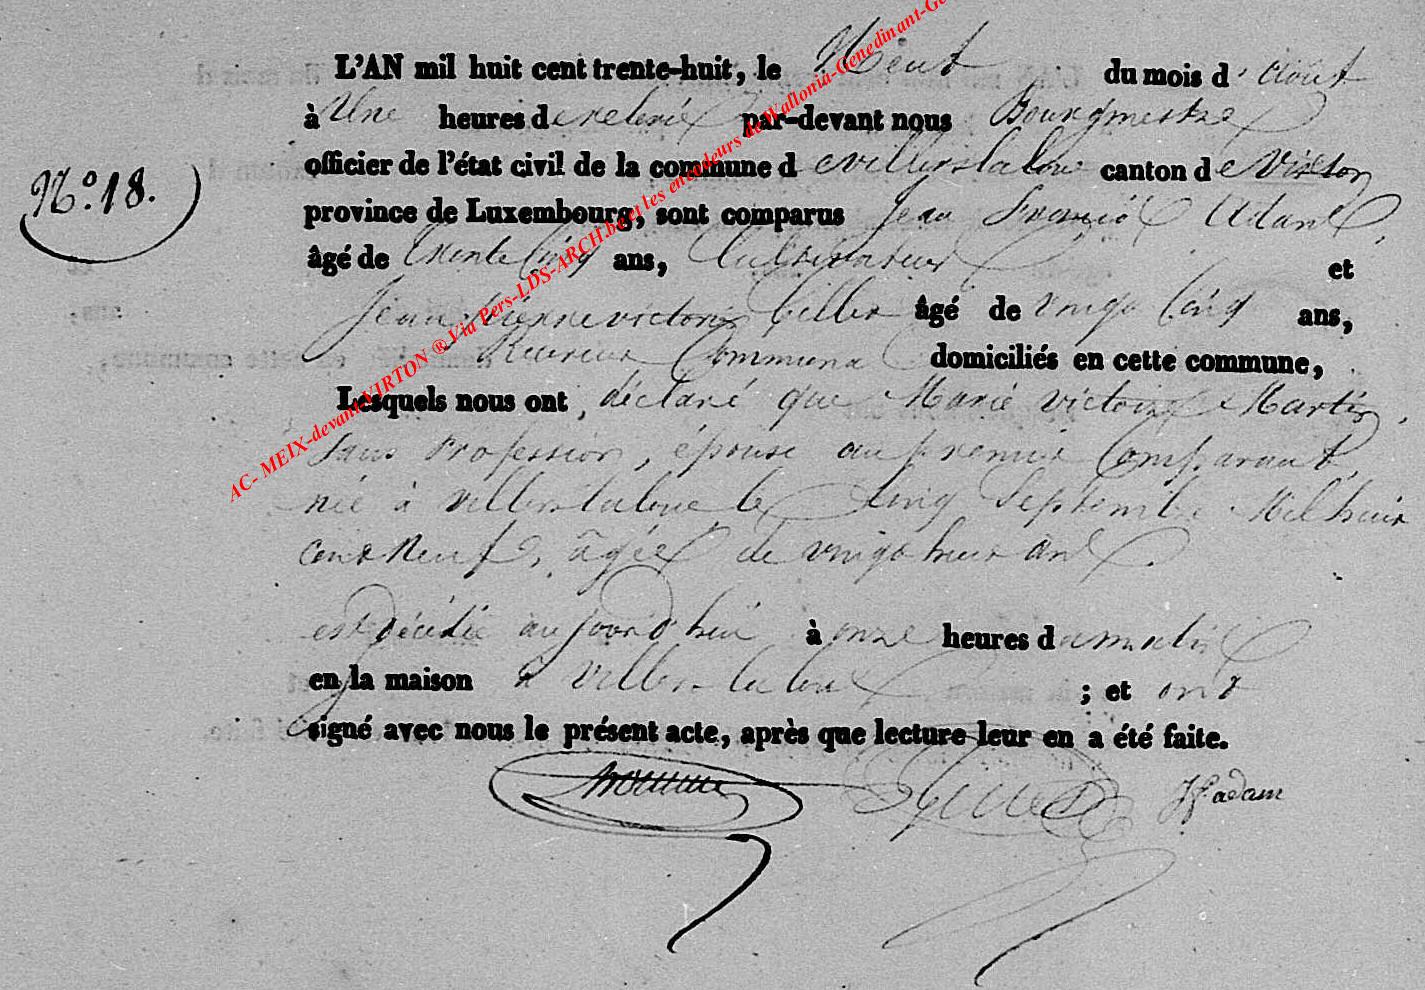 L'AN mil huit cent trente-huit, le Neuf du mois d'Aout
N.o 18.
à Une heures de relevé par-devant nous Bourgmestre
officier de l'état civil de la commune de villerslaloue canton de Virton
province de Luxembourg, sont comparus Jean François Adam,
âgé de trente Cinq ans, Cultivateur et
Jean Pierre victoire Gilles âgé de vingt Cinq ans,
Receveur Communal domiciliés en cette commune,
Lesquels nous ont déclaré que Marie victoire Martin,
sans Profession, épouse au premier Comparant,
née à villerslaloue le Cinq Septembre Mil huit
cent Neuf, âgée de vingt huit ans
est décédée aujourd'hui à onze heures du matin
en la maison à villerslaloue ; et ont
signé avec nous le présent acte, après que lecture leur en a été faite.
Gilles JF adam
AC- MEIX-devant-VIRTON ® Via Pers-LDS-ARCH.be et les encodeurs de Wallonia-Genedinant-Gen